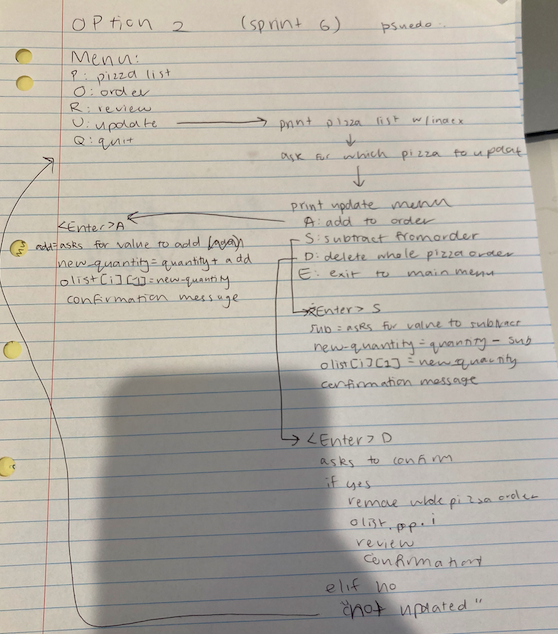 OPTION 2 (sprint 6) psuedo:
Menu:
P: pizza list
O: order
R: review
U: update
Q: quit
print pizza list w/index
ask for which pizza to updat
print update menu
A: add to order
S: subtract from order
D: delete whole pizza order
E: exit to main menu
<Enter> A
add=asks for value to add
new-quantity=quantity + add
olist[i][2]=new-quantity
confirmation message
<Enter> S
sub = asks for value to subtract
new-quantity = quantity - sub
olist[i][2] = new-quantity
confirmation message
<Enter> D
asks to confirm
if yes
remove whole pizza order
olist.pop.i
review
confirmation
elif no
"not updated"